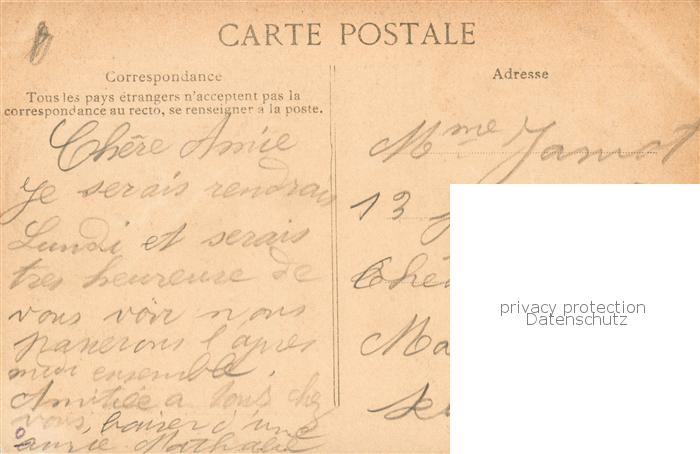 CARTE POSTALE
Correspondance
Tous les pays étrangers n'acceptent pas la
correspondance au recto, se renseigner à la poste.
Chère Amie
Je serais rendrais
Lundi et serais
tres heureuse de
vous voir nous
passerons l'apres
midi ensemble.
Amitiée a tous chez
vous, baiser d'une
amie Mathalie
Adresse
Mme Jamot
13
Ma
privacy protection
Datenschutz